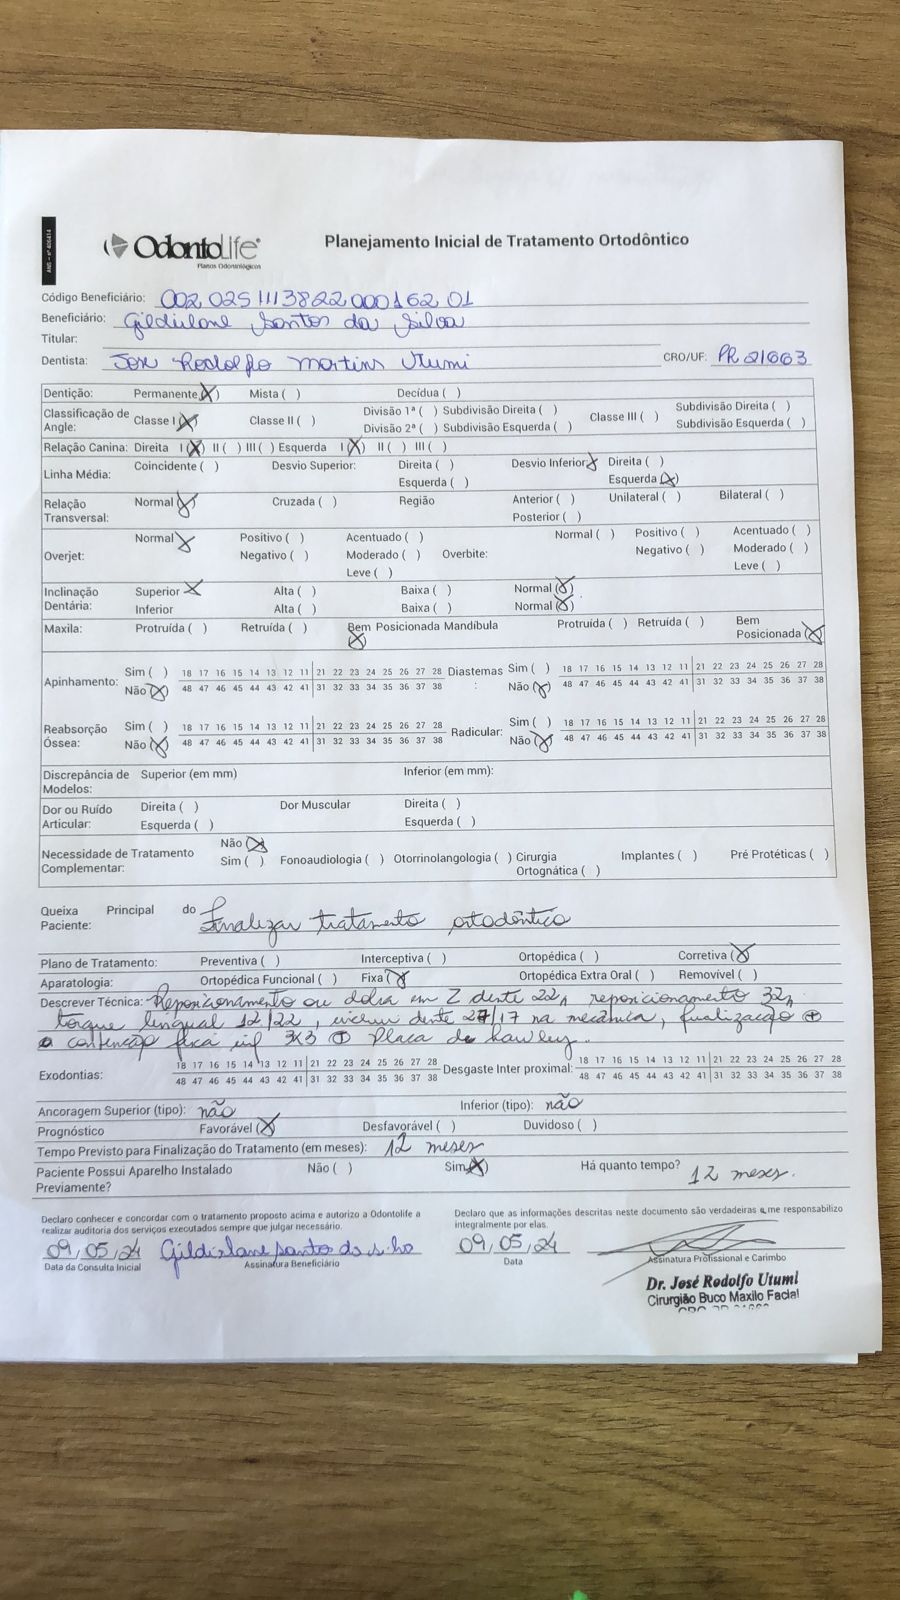 ANS - nº 406414
OdontoLife®
Planos Odontológicos
Planejamento Inicial de Tratamento Ortodôntico
Código Beneficiário: 002 025 1113822 000162 01
Beneficiário: Gildislane Santos da Silva
Titular:
Dentista: Jose Rodolfo Martins Utumi CRO/UF: PR 21663
Dentição: Permanente (X) Mista ( ) Decídua ( )
Classificação de Angle: Classe I (X) Classe II ( ) Divisão 1ª ( ) Subdivisão Direita ( ) Classe III ( ) Subdivisão Direita ( )
Divisão 2ª ( ) Subdivisão Esquerda ( ) Subdivisão Esquerda ( )
Relação Canina: Direita I (X) II ( ) III ( ) Esquerda I (X) II ( ) III ( )
Linha Média: Coincidente ( ) Desvio Superior: Direita ( ) Desvio Inferior X Direita ( )
Esquerda ( ) Esquerda (X)
Relação Transversal: Normal (X) Cruzada ( ) Região Anterior ( ) Unilateral ( ) Bilateral ( )
Posterior ( )
Overjet: Normal X Positivo ( ) Acentuado ( ) Overbite: Normal ( ) Positivo ( ) Acentuado ( )
Negativo ( ) Moderado ( ) Negativo ( ) Moderado ( )
Leve ( ) Leve ( )
Inclinação Dentária: Superior X Alta ( ) Baixa ( ) Normal (X)
Inferior Alta ( ) Baixa ( ) Normal (X)
Maxila: Protruída ( ) Retruída ( ) Bem Posicionada (X) Mandíbula Protruída ( ) Retruída ( ) Bem Posicionada (X)
Apinhamento: Sim ( ) 18 17 16 15 14 13 12 11 21 22 23 24 25 26 27 28 Diastemas: Sim ( ) 18 17 16 15 14 13 12 11 21 22 23 24 25 26 27 28
Não (X) 48 47 46 45 44 43 42 41 31 32 33 34 35 36 37 38 Não (X) 48 47 46 45 44 43 42 41 31 32 33 34 35 36 37 38
Reabsorção Óssea: Sim ( ) 18 17 16 15 14 13 12 11 21 22 23 24 25 26 27 28 Radicular: Sim ( ) 18 17 16 15 14 13 12 11 21 22 23 24 25 26 27 28
Não (X) 48 47 46 45 44 43 42 41 31 32 33 34 35 36 37 38 Não (X) 48 47 46 45 44 43 42 41 31 32 33 34 35 36 37 38
Discrepância de Modelos: Superior (em mm) Inferior (em mm):
Dor ou Ruído Articular: Direita ( ) Dor Muscular Direita ( )
Esquerda ( ) Esquerda ( )
Necessidade de Tratamento Complementar: Não (X)
Sim ( ) Fonoaudiologia ( ) Otorrinolangologia ( ) Cirurgia Ortognática ( ) Implantes ( ) Pré Protéticas ( )
Queixa Principal do Paciente: Finalizar tratamento ortodôntico
Plano de Tratamento: Preventiva ( ) Interceptiva ( ) Ortopédica ( ) Corretiva (X)
Aparatologia: Ortopédica Funcional ( ) Fixa (X) Ortopédica Extra Oral ( ) Removível ( )
Descrever Técnica: Reposicionamento ou dobra em Z dente 22, reposicionamento 32,
torque lingual 12/22, incluir dente 27/17 na mecânica, finalização +
contenção fixa inf 3x3 + Placa de hawley.
Exodontias: 18 17 16 15 14 13 12 11 21 22 23 24 25 26 27 28 Desgaste Inter proximal: 18 17 16 15 14 13 12 11 21 22 23 24 25 26 27 28
48 47 46 45 44 43 42 41 31 32 33 34 35 36 37 38 48 47 46 45 44 43 42 41 31 32 33 34 35 36 37 38
Ancoragem Superior (tipo): não Inferior (tipo): não
Prognóstico Favorável (X) Desfavorável ( ) Duvidoso ( )
Tempo Previsto para Finalização do Tratamento (em meses): 12 meses
Paciente Possui Aparelho Instalado Previamente? Não ( ) Sim (X) Há quanto tempo? 12 meses.
Declaro conhecer e concordar com o tratamento proposto acima e autorizo a Odontolife a
realizar auditoria dos serviços executados sempre que julgar necessário.
Declaro que as informações descritas neste documento são verdadeiras e me responsabilizo
integralmente por elas.
09/05/24 Gildislane santos da s.lva 09/05/24
Data da Consulta Inicial Assinatura Beneficiário Data Assinatura Profissional e Carimbo
Dr. José Rodolfo Utumi
Cirurgião Buco Maxilo Facial